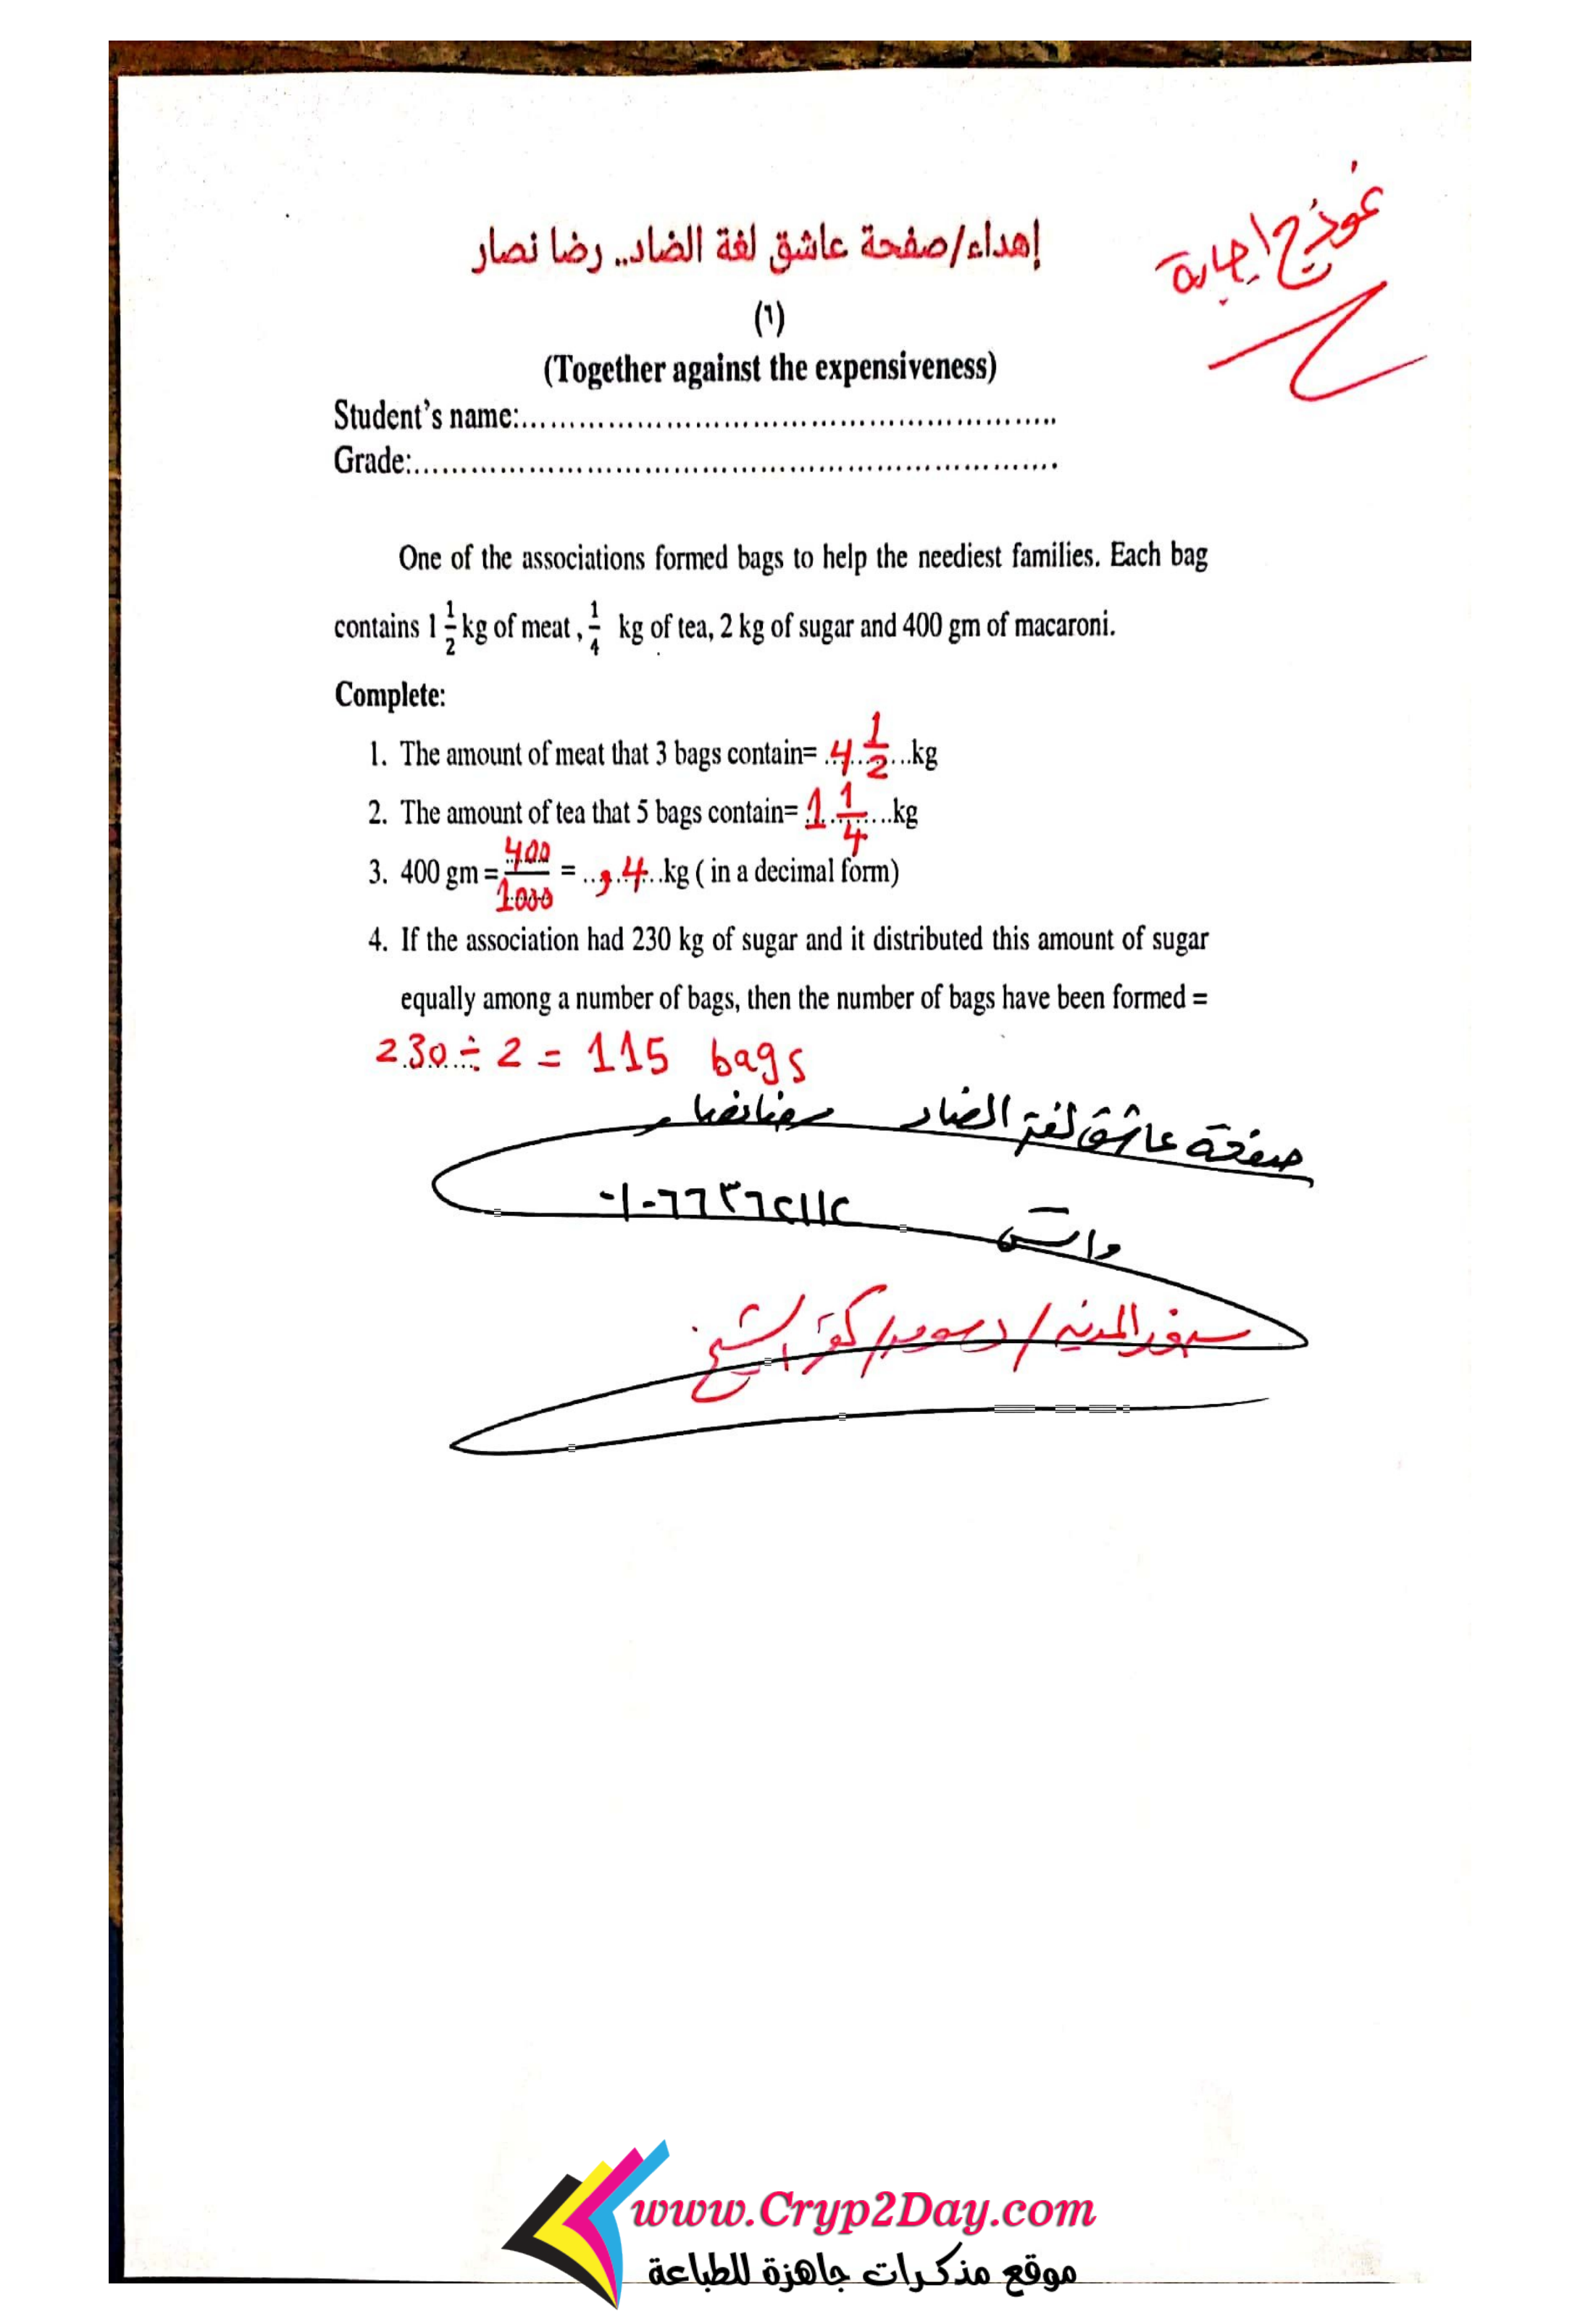 نموذج إجابة
إهداء/صفحة عاشق لغة الضاد.. رضا نصار
(٦)
(Together against the expensiveness)
Student's name:...........................................................
Grade:.....................................................................
One of the associations formed bags to help the neediest families. Each bag
contains 1 1/2 kg of meat , 1/4 kg of tea, 2 kg of sugar and 400 gm of macaroni.
Complete:
1. The amount of meat that 3 bags contain= ..4 1/2...kg
2. The amount of tea that 5 bags contain= 1 1/4...kg
3. 400 gm = 400/1000 = ..,4..kg ( in a decimal form)
4. If the association had 230 kg of sugar and it distributed this amount of sugar
equally among a number of bags, then the number of bags have been formed =
230 ÷ 2 = 115 bags
صفحة عاشق لغة الضاد رضا نصار
واتس ٠١٠٦٦٣٦٢١١٢
سنهور المدينة / دسوق / كفر الشيخ
www.Cryp2Day.com
موقع مذكرات جاهزة للطباعة